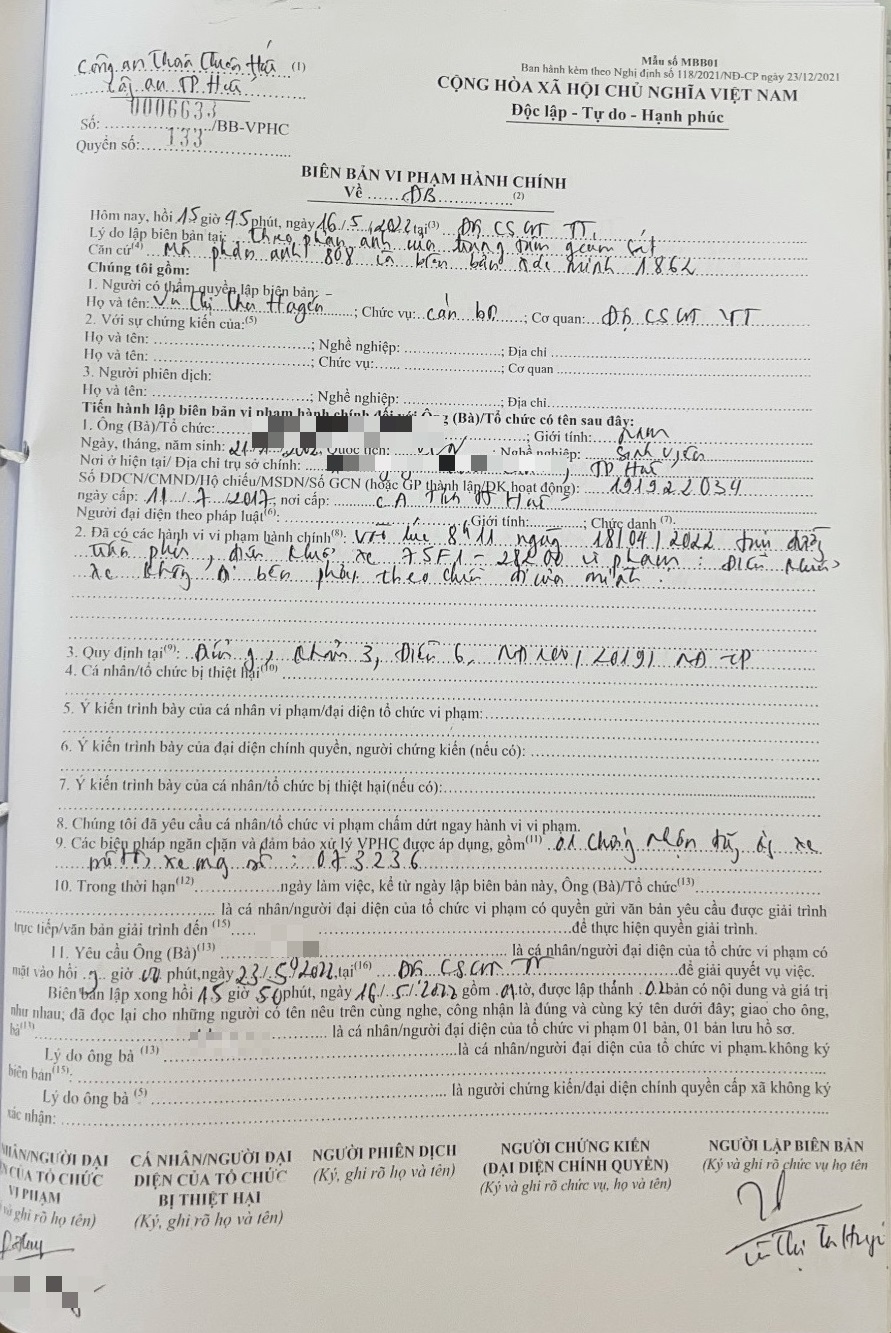 Mẫu số MBB01
Ban hành kèm theo Nghị định số 118/2021/NĐ-CP ngày 23/12/2021
CỘNG HÒA XÃ HỘI CHỦ NGHĨA VIỆT NAM
Độc lập - Tự do - Hạnh phúc
Công an (1)
TP. Huế
0006633
Số: /BB-VPHC
Quyển số: 133
BIÊN BẢN VI PHẠM HÀNH CHÍNH
Về ĐB (2)
Hôm nay, hồi 15 giờ 45 phút, ngày 16/5/2022 tại(3)
Lý do lập biên bản tại: theo phản ánh của trung tâm giám sát
Căn cứ(4) Mã phản ánh 808 và biên bản xác minh 1862
Chúng tôi gồm:
1. Người có thẩm quyền lập biên bản: -
Họ và tên: ; Chức vụ: cán bộ ; Cơ quan:
2. Với sự chứng kiến của:(5)
Họ và tên: ; Nghề nghiệp: ; Địa chỉ
Họ và tên: ; Chức vụ: ; Cơ quan
3. Người phiên dịch:
Họ và tên: ; Nghề nghiệp: ; Địa chỉ
Tiến hành lập biên bản vi phạm hành chính đối với Ông (Bà)/Tổ chức có tên sau đây:
1. Ông (Bà)/Tổ chức: ; Giới tính: Nam
Ngày, tháng, năm sinh: Quốc tịch: VN Nghề nghiệp: Sinh viên
Nơi ở hiện tại/ Địa chỉ trụ sở chính: , TP Huế
Số ĐDCN/CMND/Hộ chiếu/MSDN/Số GCN (hoặc GP thành lập/ĐK hoạt động): 191922034
ngày cấp: 11/7/2017, nơi cấp: CA Tỉnh TT Huế
Người đại diện theo pháp luật(6): Giới tính: ; Chức danh (7):
2. Đã có các hành vi vi phạm hành chính(8): Vào lúc 8h11 ngày 18/04/2022 tại đường
, điều khiển xe 75F1 - vi phạm: Điều khiển
xe không đi bên phải theo chiều đi của mình.
3. Quy định tại(9): Điểm g, Khoản 3, Điều 6, NĐ 100/2019/NĐ-CP
4. Cá nhân/tổ chức bị thiệt hại(10)
5. Ý kiến trình bày của cá nhân vi phạm/đại diện tổ chức vi phạm:
6. Ý kiến trình bày của đại diện chính quyền, người chứng kiến (nếu có):
7. Ý kiến trình bày của cá nhân/tổ chức bị thiệt hại(nếu có):
8. Chúng tôi đã yêu cầu cá nhân/tổ chức vi phạm chấm dứt ngay hành vi vi phạm.
9. Các biện pháp ngăn chặn và đảm bảo xử lý VPHC được áp dụng, gồm(11) 01 chứng nhận đăng ký xe
mô tô xe mg số: 073236
10. Trong thời hạn(12) ngày làm việc, kể từ ngày lập biên bản này, Ông (Bà)/Tổ chức(13)
là cá nhân/người đại diện của tổ chức vi phạm có quyền gửi văn bản yêu cầu được giải trình
trực tiếp/văn bản giải trình đến (15) để thực hiện quyền giải trình.
11. Yêu cầu Ông (Bà)(13) là cá nhân/người đại diện của tổ chức vi phạm có
mặt vào hồi giờ 00 phút, ngày 23/5/2022, tại(16) để giải quyết vụ việc.
Biên bản lập xong hồi 15 giờ 50 phút, ngày 16/5/2022 gồm 01 tờ, được lập thành 02 bản có nội dung và giá trị
như nhau; đã đọc lại cho những người có tên nêu trên cùng nghe, công nhận là đúng và cùng ký tên dưới đây; giao cho ông,
bà(13) là cá nhân/người đại diện của tổ chức vi phạm 01 bản, 01 bản lưu hồ sơ.
Lý do ông bà (13) là cá nhân/người đại diện của tổ chức vi phạm không ký
biên bản(15):
Lý do ông bà (5) là người chứng kiến/đại diện chính quyền cấp xã không ký
xác nhận:
NHÂN/NGƯỜI ĐẠI
N CỦA TỔ CHỨC
VI PHẠM
và ghi rõ họ tên)
CÁ NHÂN/NGƯỜI ĐẠI
DIỆN CỦA TỔ CHỨC
BỊ THIỆT HẠI
(Ký, ghi rõ họ và tên)
NGƯỜI PHIÊN DỊCH
(Ký, ghi rõ họ và tên)
NGƯỜI CHỨNG KIẾN
(ĐẠI DIỆN CHÍNH QUYỀN)
(Ký và ghi rõ chức vụ, họ và tên)
NGƯỜI LẬP BIÊN BẢN
(Ký và ghi rõ chức vụ họ tên